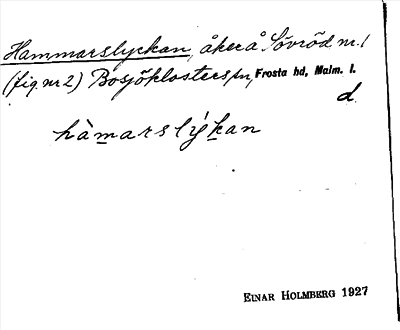 Hammarslyckan, åker å Sövröd nr. 1
(fig. nr 2) Bosjöklosters sn, Frosta hd, Malm. l.
d.
hàmarslýkan
EINAR HOLMBERG 1927